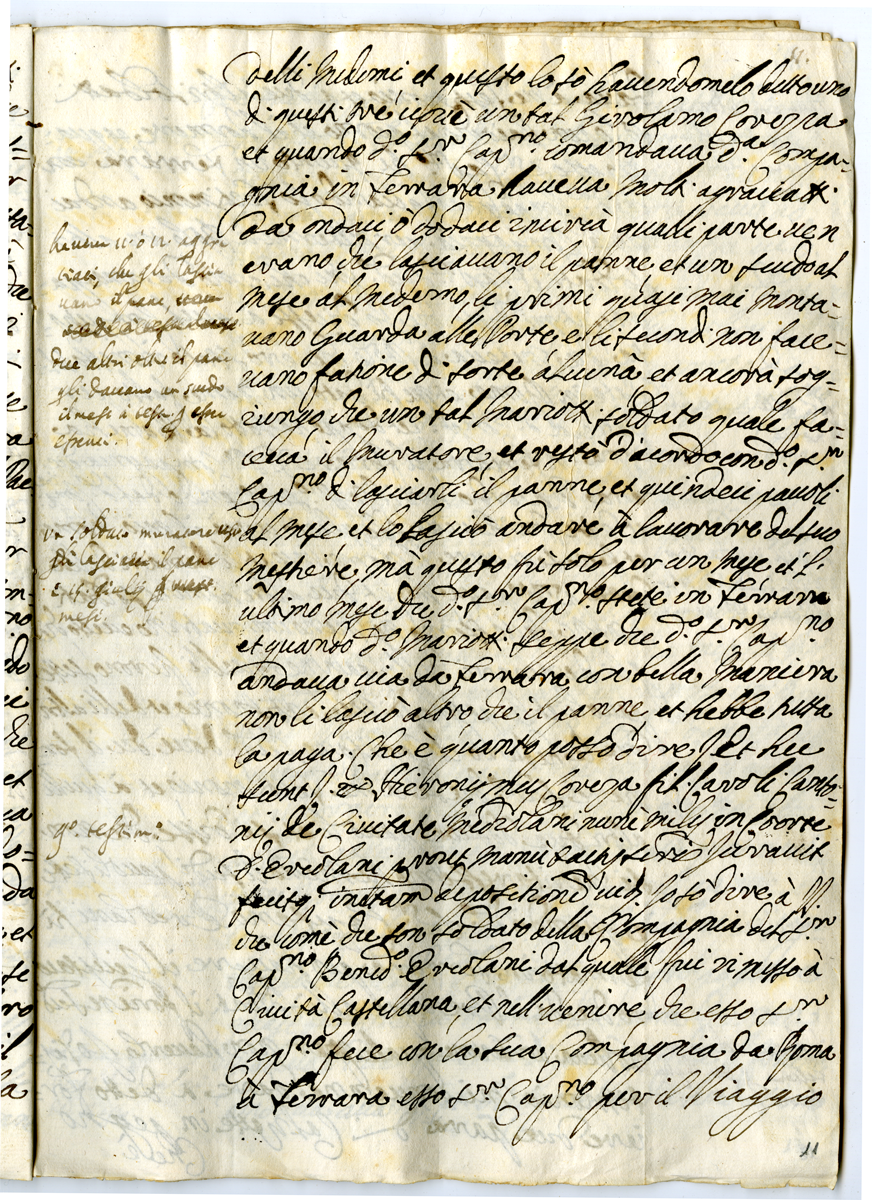 11.
delli Medemi et questo lo sò havendomelo detto uno
di questi trè cioè un tal Girolamo Corezza
et quando d.º S.r Cap.no comandava d.a Compa=
gnia in Ferrara haveva Molti agraciatti
da ondaci ò dodaci in circà quali parte ven
erano che lasciavano il panne, et un scudo al
Mese al Medemo, li primi quasi mai Monta=
vano Guarda alle Porte e lli secondi non face=
vano fatione di sorte alcunà et ancorà sog=
iungo che un tal Mariotti soldato quale fa=
cevà il Muratore, et restò d'acordo con d.º S.r
Cap.no di lasciarli il panne, et quindeci pauoli
al Mese et lo lasciò andare à lavorare del suo
Mestiere, mà questo fù solo per un Mese et l'
ultimo Mese che d.º S.r Cap.no stete in Ferrara
et quando d.º Mariotti seppe che d.º S.r Cap.no
andava via da Ferrara con bella Maniera
non li lasciò altro che il panne et hebbe tutta
la paga. Che è quanto posso dire Et hec
sunt Hieronijmus Coreza fil. Caroli
nij de Civitate Mediolani nunc miles in Coorte
D. Ercolani prout manu tactis iuravit
fecitq. depositionem Io sò dire à V.S.
che come che son soldato della Compagnia del S.r
Cap.no Bened.º Ercolani dal quale fui rimesso à
Cività Castellana, et nell venire che esso S.r
Cap.no fece con la sua Compagnia da Roma
à Ferrara esso S.r Cap.no per il Viaggio
haveva 11 ò 12 aggra
ciati, che gli lascia
vano il pane,
due altri oltre il pane
gli davano un scudo
il mese à testa p esser
esenti.
Un soldato muratore
gli lasciava il pane
e 15 giulij
mese.
9.º testim.º
11